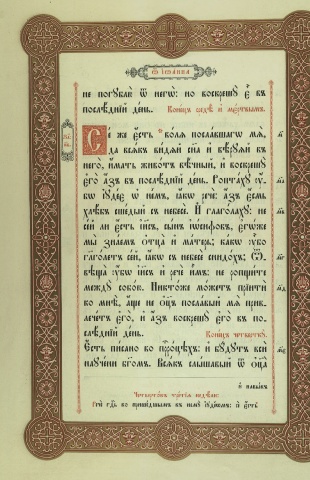 Ѿ іѡанна
не погублю̀ ѿ негѡ̀: но воскрешу̀ є̀ въ
послѣ́дній де́нь. Коне́цъ средѣ̀ и҆ ме́ртвымъ.
Се́ же є҆́сть во́лѧ посла́вшагѡ мѧ̀,
да всѧ́къ ви́дѧй сн҃а и҆ вѣ́руѧй въ
него̀, и҆́мать живо́тъ вѣ́чный, и҆ воскрешу̀
є҆го̀ а҆́зъ въ послѣ́дній де́нь. Ропта́ху ᲂу҆́-
бѡ і҆уде́є ѡ҆ не́мъ, ꙗ҆́кѡ речѐ: а҆́зъ є҆́смь
хлѣ́бъ сше́дый съ небесѐ. И҆ глаго́лаху: не
се́й ли є҆́сть і҆и҃съ, сы́нъ і҆ѡ́сифовъ, є҆гѡ́же
мы̀ зна́емъ ѻ҆тца̀ и҆ ма́терь; ка́кѡ ᲂу҆̀бо
гл҃го́летъ се́й, ꙗ҆́кѡ съ небесѐ снидо́хъ; Ѿ-
вѣща̀ ᲂу҆́бѡ і҆и҃съ и҆ речѐ и҆̀мъ: не ропщи́те
междꙋ̀ собо́ю. Никто́же мо́жетъ прїитѝ
ко мнѣ̀, а҆́ще не ѻ҆ц҃ъ посла́вый мѧ̀ прив-
лече́тъ є҆го̀, и҆ а҆́зъ воскрешу̀ є҆го̀ въ по-
слѣ́дній де́нь. Коне́цъ четверткꙋ̀.
Є҆́сть пи́сано во проро́цѣхъ: и҆ бу́дутъ всѝ
наꙋче́ни бг҃омъ. Всѧ́къ слы́шавый ѿ ѻ҆ц҃а̀
и҆ навы́къ
Четверто́къ тре́тїѧ недѣ́ли:
речѐ гдⷭ҇ь ко прише́дшымъ къ немꙋ̀ і҆уде́ѡмъ: сѐ є҆́сть
м҃
м҃а
м҃в
м҃г
м҃д
м҃є